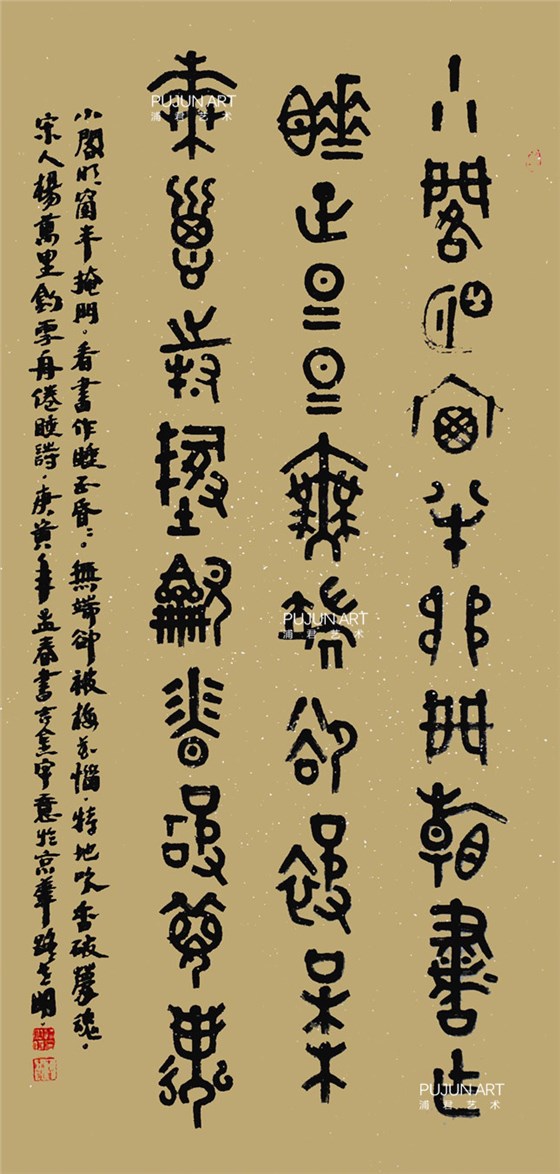 小閣明窗半掩門看書作
睡正昏昏無端卻被梅
花惱特地吹香破夢魂
小閣明窗半掩門。看書作睡正昏〻。無端卻被梅花惱。特地吹香破夢魂。
宋人楊萬里釣雪舟倦睡詩。庚寅年孟春書吉金字意於京華
PUJUN ART
浦君艺术
PUJUN ART
浦君艺术
PUJUN ART
浦君艺术